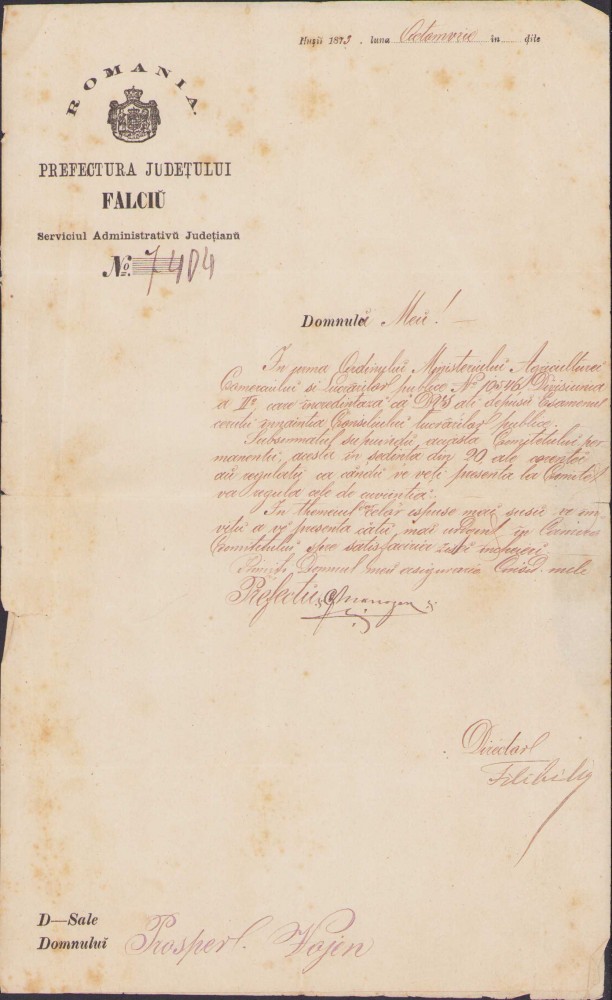 Hușii 1873, luna Octomvrie in dile
ROMANIA.
PREFECTURA JUDEȚULUI
FALCIŬ
Serviciul Administrativŭ Judeţianŭ
No. 7404
Domnulŭ Meŭ!
In urma Ordinului Ministeriului Agriculturei
Comerciului si lucrărilor publice No 10546 Divisiunea
a II a, care încredintază ca DVŏs ati depusŭ Esamenul
cerutŭ Consiliului lucrărilor publice.
Subsemnatul supuindŭ acesta Comitetului per
manentŭ; acesta in sedinta din 20 ale corentei
aŭ regulatŭ ca cândŭ ve veti presenta la Comitet
va regula cele de cuviintia.
In themeiul celor espuse mai susŭ ve in
vitŭ a vĕ presenta câtŭ mai urgent in Camera
Comitetului spre
Primiti, Domnul meŭ asigurarea Consid. mele
Prefectŭ
Director
D—Sale
Domnului Prosper